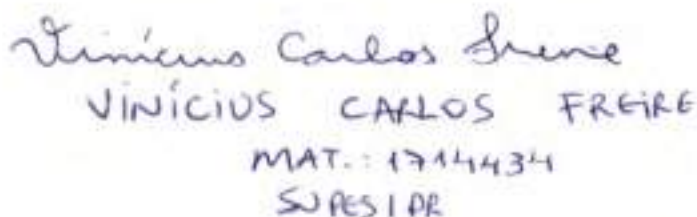 Vinícius Carlos Freire
VINÍCIUS CARLOS FREIRE
MAT.: 1714434
SUPES/PR